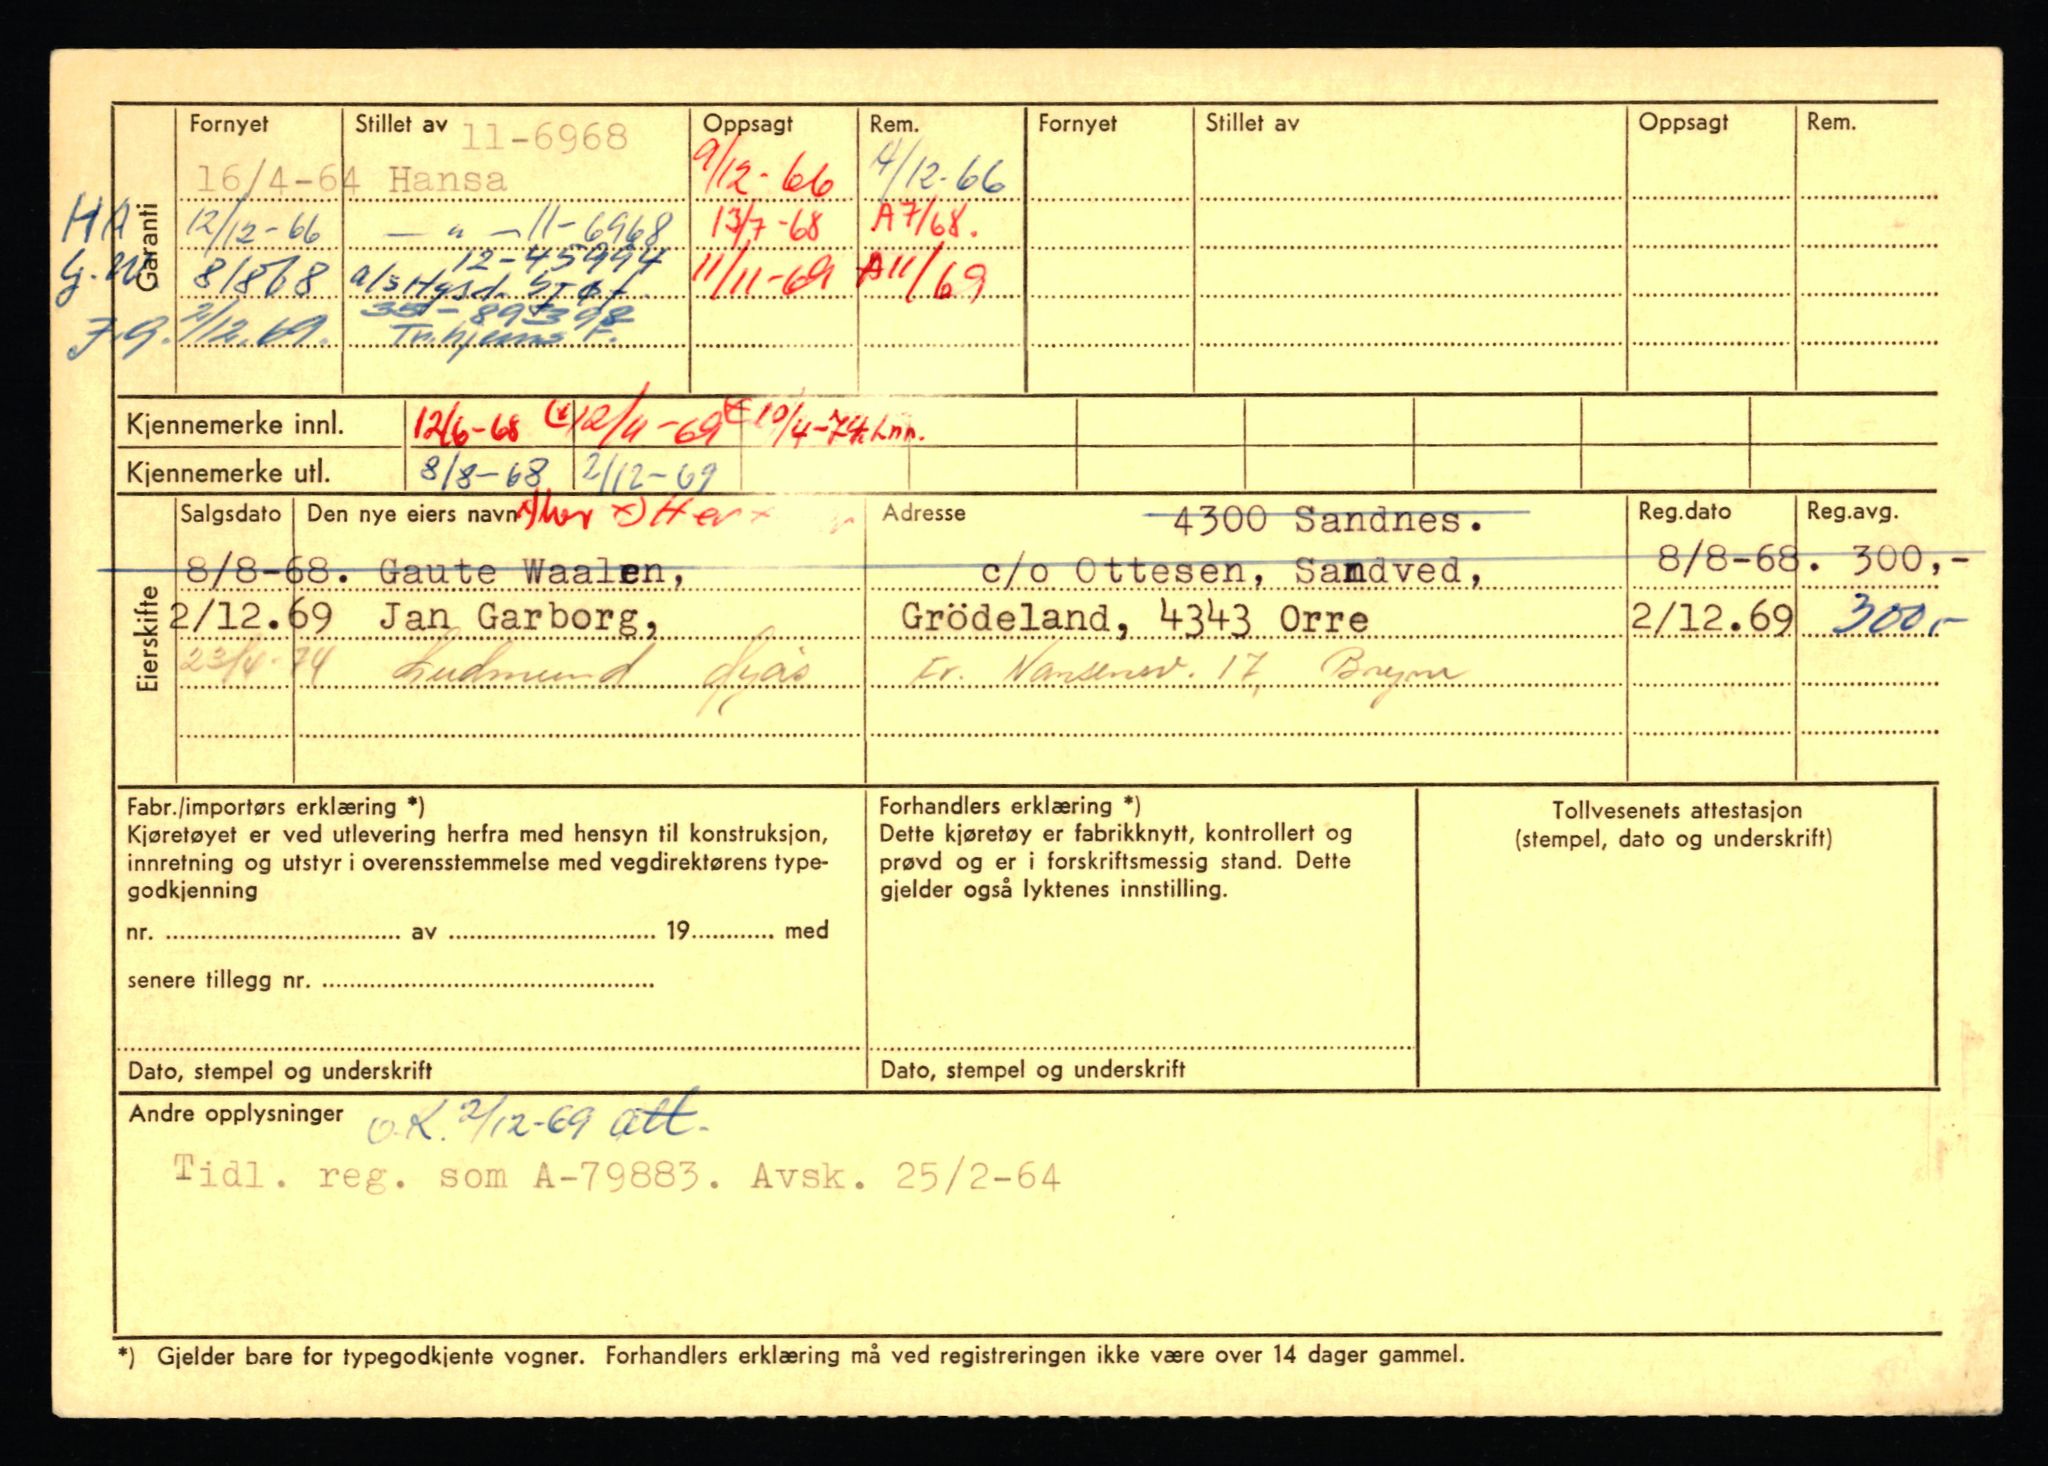 Garanti
Fornyet Stillet av Oppsagt Rem. Fornyet Stillet av Oppsagt Rem.
11-6968
16/4-64 Hansa 9/12-66 4/12-66
HA 12/12-66 — " — 11-6968 13/7-68 A7/68.
12-45994
8/8 68 a/s 11/11-69 A11/69
35-89398
J.G. 2/12.69. Tr.hjems F.
Kjennemerke innl. 12/6-68 12/11-69 19/4-74 Inn.
Kjennemerke utl. 8/8-68 2/12-69
Eierskifte
Salgsdato Den nye eiers navn Her x) Her x Adresse 4300 Sandnes. Reg.dato Reg.avg.
8/8-68. Gaute Waalen, c/o Ottesen, Sandved, 8/8-68. 300,-
2/12.69 Jan Garborg, Grödeland, 4343 Orre 2/12.69 300,-
23/4-74 Ludmund Fr. Nansensv. 17, Bryne
Fabr./importørs erklæring *)
Kjøretøyet er ved utlevering herfra med hensyn til konstruksjon,
innretning og utstyr i overensstemmelse med vegdirektørens type-
godkjenning
nr. .................... av .................... 19............ med
senere tillegg nr. ....................
Dato, stempel og underskrift
Forhandlers erklæring *)
Dette kjøretøy er fabrikknytt, kontrollert og
prøvd og er i forskriftsmessig stand. Dette
gjelder også lyktenes innstilling.
Dato, stempel og underskrift
Tollvesenets attestasjon
(stempel, dato og underskrift)
Andre opplysninger O.K. 2/12-69 att.
Tidl. reg. som A-79883. Avsk. 25/2-64
*) Gjelder bare for typegodkjente vogner. Forhandlers erklæring må ved registreringen ikke være over 14 dager gammel.